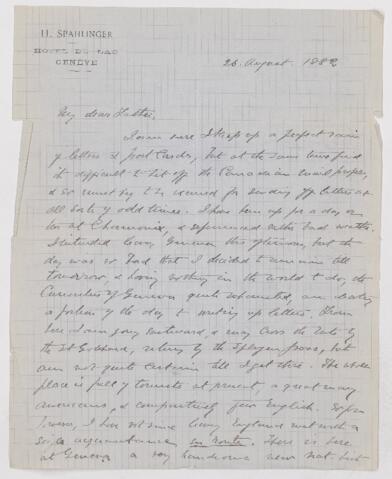 H. SPAHLINGER
HOTEL DU LAC
GENÈVE
26. August 1882
My dear Father,
I am sure I keep up a perfect rain
of letters & post cards, but at the same time find
it difficult to hit off the Canadian mail properly
& so must try to be excused for sending off letters at
all sorts of odd times. I have been up for a day or
two at Chamonix, & experienced rather bad weather.
I intended leaving Geneva this afternoon, but the
day was so bad that I decided to remain till
tomorrow, & having nothing in the world to do, the
Curiosities of Geneva quite exhausted, am devoting
a portion of the day to writing up letters. From
here I am going Eastward, & may cross the Lake by
the St Gothard, return by the Splugen pass, but
am not quite certain till I get there. The whole
place is full of tourists at present, a great many
americans, & comparatively few English. So far
however, I have not since leaving England met with a
single acquaintance en route. There is here
at Geneva a very handsome new